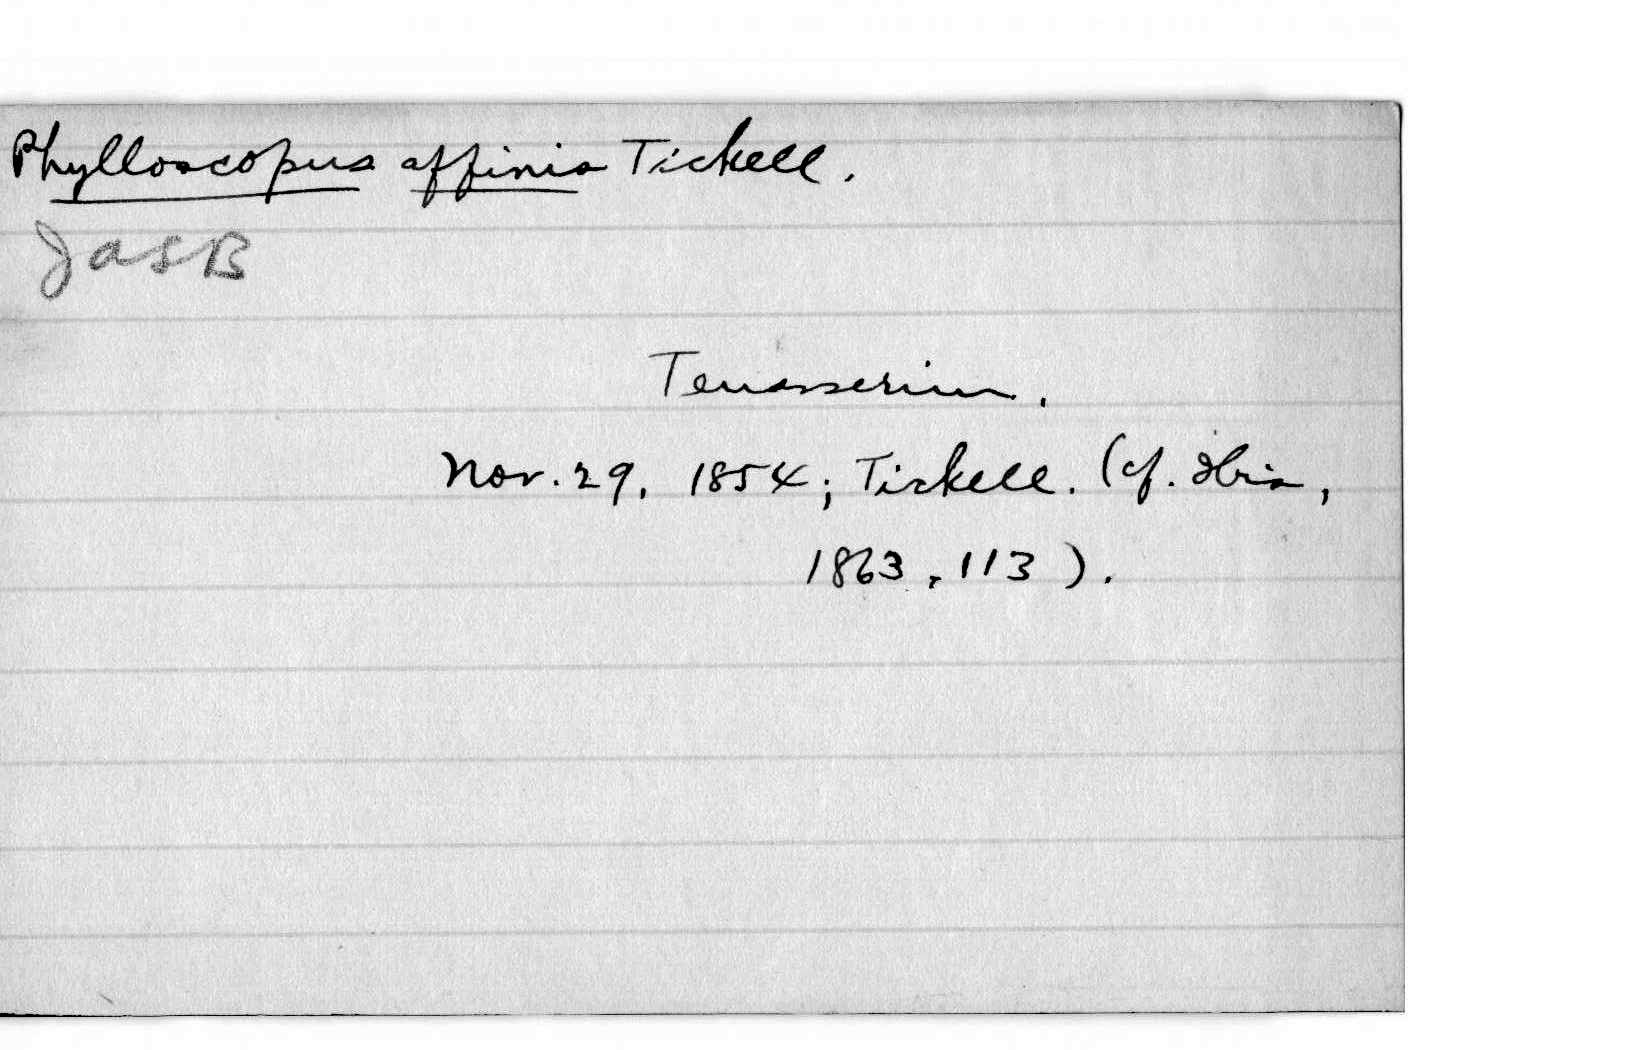 Phylloscopus affinis Tickell.
JASB
Tenasserim.
Nov. 29, 1854; Tickell. (cf. Ibis,
1863, 113).